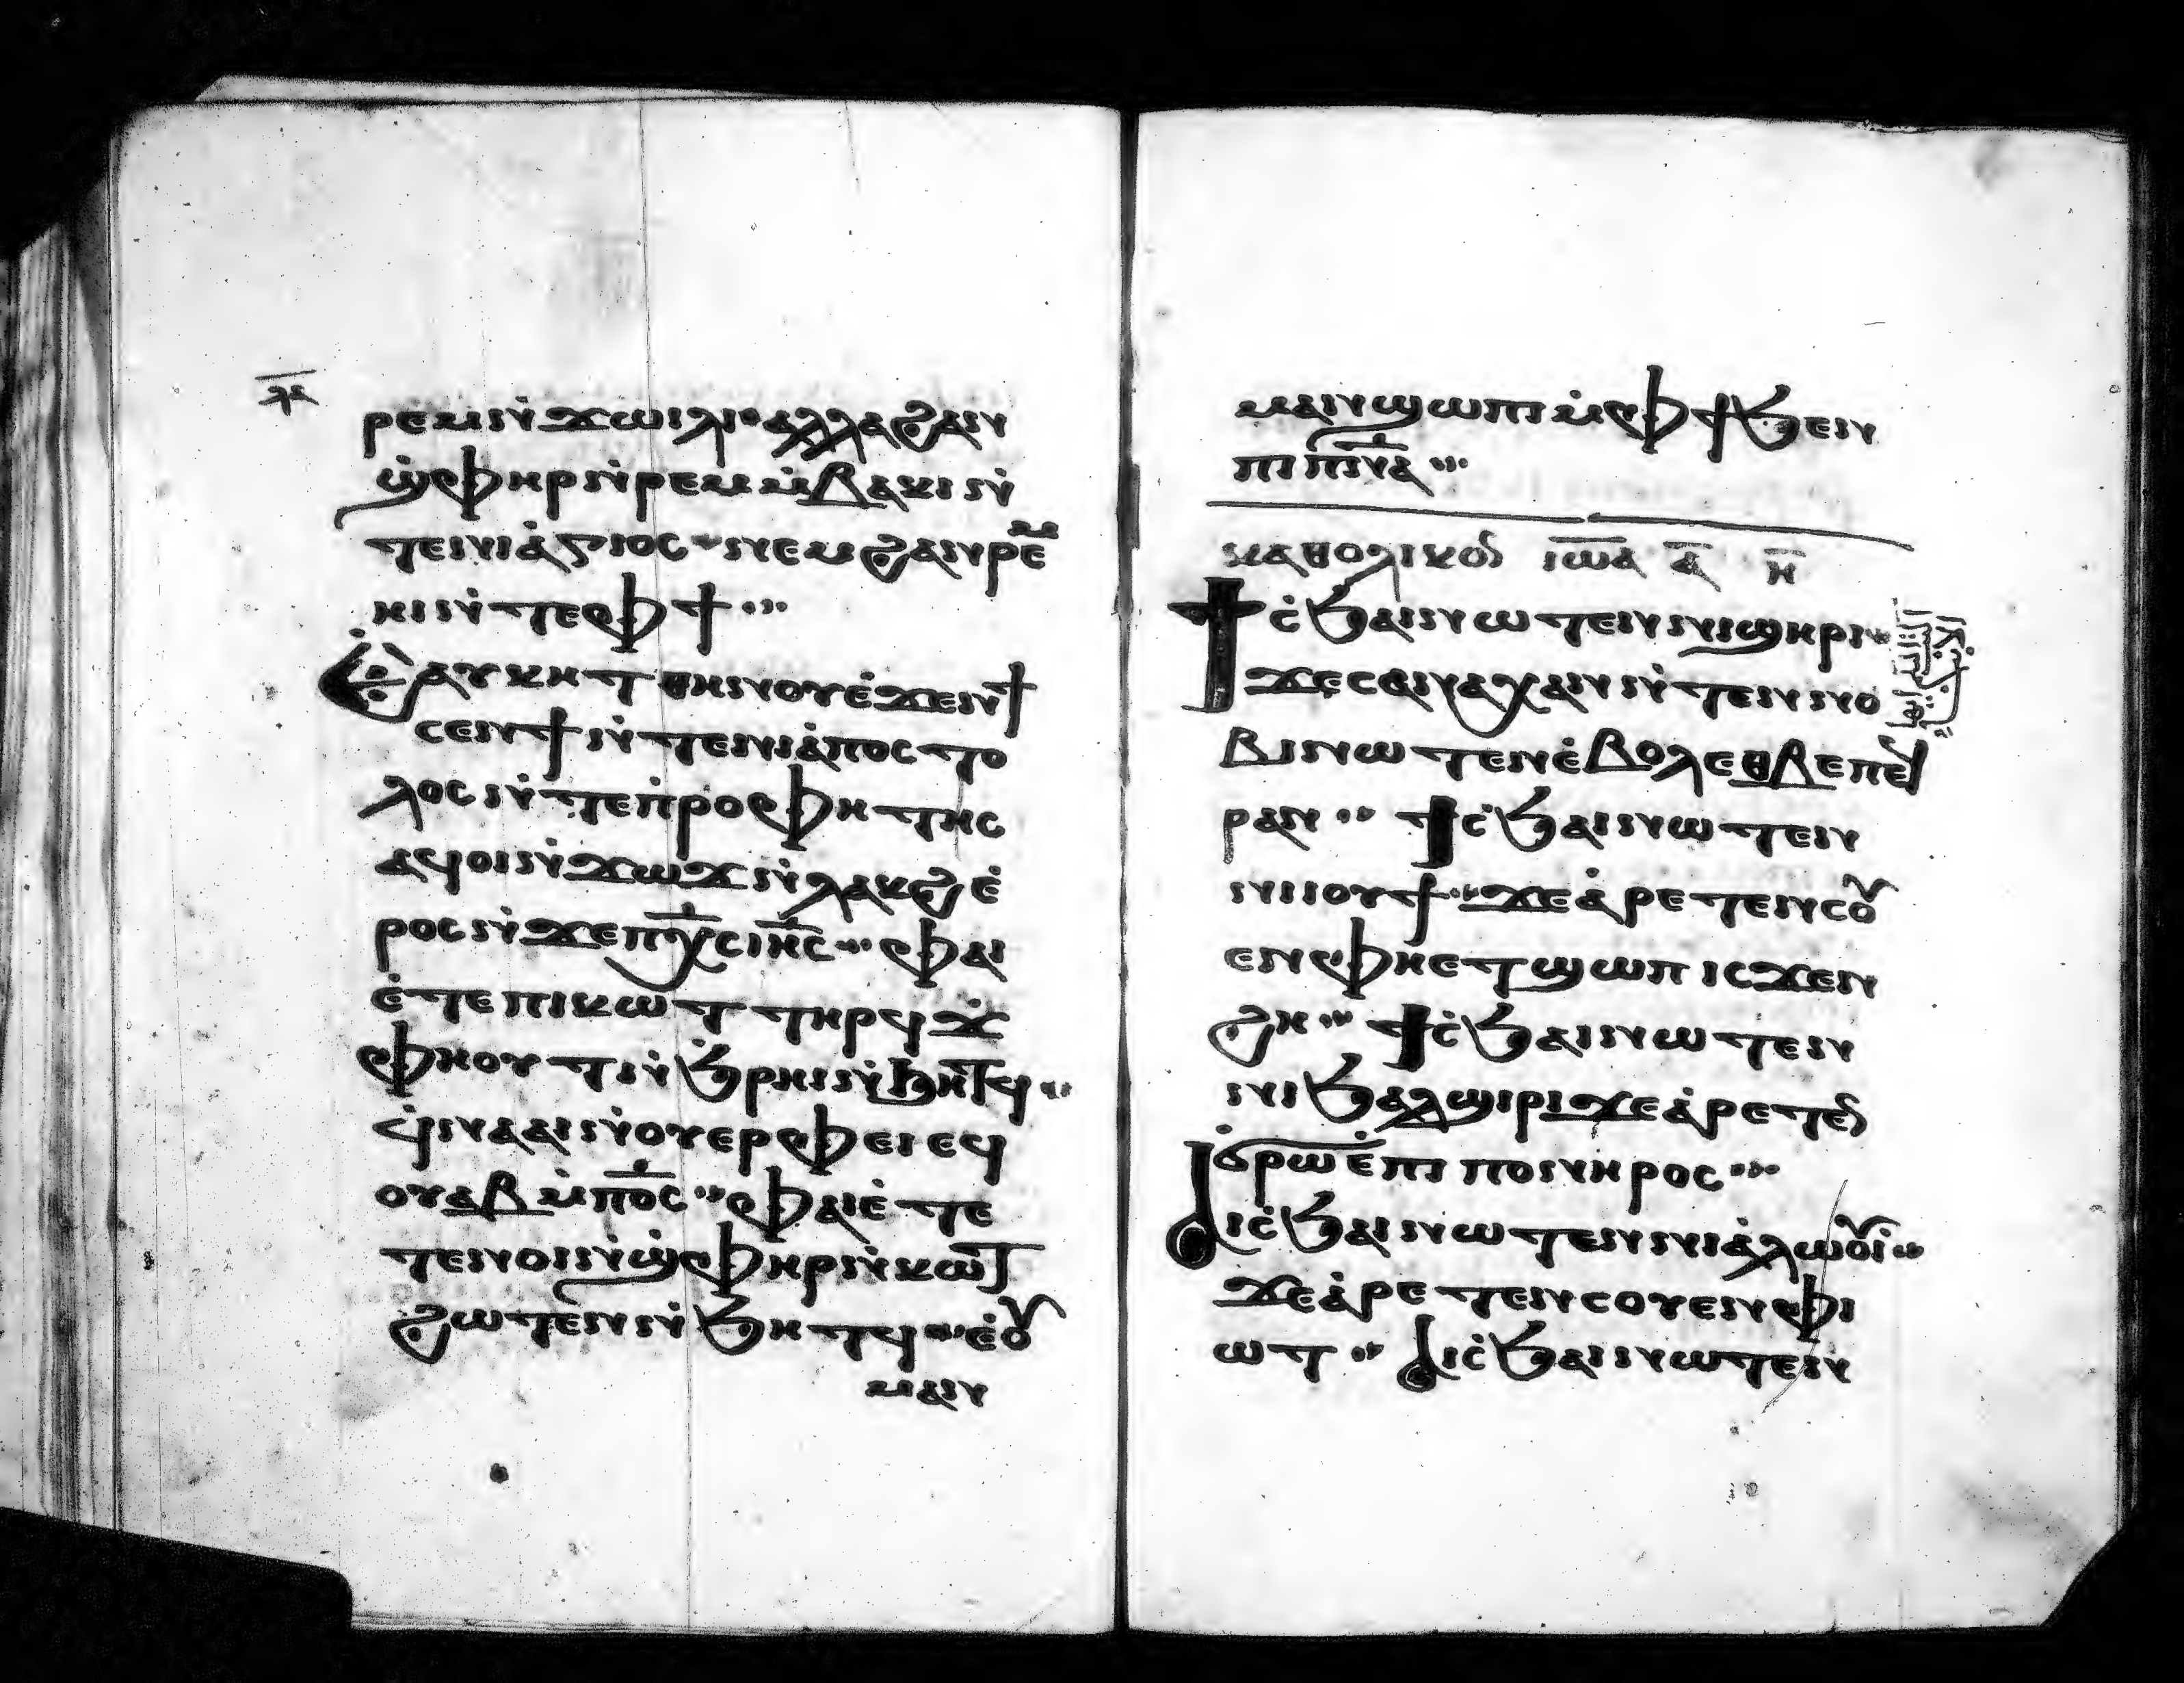 ⲗⲉ
ⲣⲉⲙⲛ̀ϫⲱⲓⲗⲓ ⲁⲗⲗⲁ ϩⲁⲛ
ϣ̀ⲫⲏⲣ ⲛ̀ⲣⲉⲙⲙ̀ⲃⲁⲕⲓ ⲛ̀
ⲧⲉⲛⲓⲁ̀ⲅⲓⲟⲥ ⲛⲉⲙ ϩⲁⲛⲣⲉⲙ
ⲏⲓ ⲛ̀ⲧⲉⲫϯ
ⲉ̀ⲁⲩⲕⲉⲧ ⲑⲏⲛⲟⲩ ⲉ̀ϫⲉⲛϯ
ⲥⲉⲛϯ ⲛ̀ⲧⲉⲛⲓⲁ̀ⲡⲟⲥⲧⲟ
ⲗⲟⲥ ⲛ̀ⲧⲉⲡ̀ⲣⲟⲫⲏⲧⲏⲥ
ⲁϥⲟⲓ ⲛ̀ϫⲱϫ ⲛ̀ⲗⲁⲕϩ ⲉ̀
ⲣⲟⲥ ⲛ̀ϫⲉⲡⲭ̅ⲥ ⲓⲏ̅ⲥ ⲫⲁⲓ
ⲉ̀ⲧⲉ ⲡⲓⲕⲱⲧ ⲧⲏⲣϥ ϫ̀
ⲫⲏⲟⲩⲧ ⲛ̀ϧ̀ⲣⲏⲓ ⲛ̀ϧⲏⲧϥ
ϥ̀ⲛⲁⲁⲓ ⲛ̀ⲟⲩⲉⲣⲫⲉⲓ ⲉϥ
ⲟⲩⲁⲃ ⲙ̀ⲡⲟ̅ⲥ ⲫⲁⲓ ⲉ̀ⲧⲉ
ⲧⲉⲛⲟⲓ ⲛ̀ϣ̀ⲫⲏⲣ ⲛ̀ⲕⲱⲧ
ϩⲱⲧⲉⲛ ⲛ̀ϧⲏⲧϥ ⲉ̀ⲟⲩ
ⲙⲁⲛ
ⲙⲁⲛϣⲱⲡⲓ ⲙ̀ⲫϯ ϧⲉⲛ
ⲡⲓⲡ̅ⲛ̅ⲁ
ⲕⲁⲑⲟⲗⲓⲕⲟⲛ ⲓⲱ̅ⲁ ⲁ̅ ⲏ̅
ϯⲥ̀ϧⲁⲓ ⲛⲱⲧⲉⲛ ⲛⲓϣⲏⲣⲓ
ϫⲉ ⲥⲉⲛⲁⲭⲁⲛ ⲛ̀ⲧⲉⲛ ⲛⲟ
ⲃⲓ ⲛⲱⲧⲉⲛ ⲉ̀ⲃⲟⲗ ⲉⲑⲃⲉ ⲡⲉϥ
ⲣⲁⲛ ϯⲥ̀ϧⲁⲓ ⲛⲱⲧⲉⲛ
ⲛⲓⲓⲟϯ ϫⲉ ⲁ̀ⲣⲉⲧⲉⲛⲥⲟⲩ
ⲉⲛ ⲫⲏⲉⲧϣⲱⲡ ⲓⲥϫⲉⲛ
ϩⲏ ϯⲥ̀ϧⲁⲓ ⲛⲱⲧⲉⲛ
ⲛⲓϧⲁⲗϣⲓⲣⲓ ϫⲉ ⲁ̀ⲣⲉⲧⲉⲛ
ϭⲣⲱ ⲉ̀ⲡⲓⲡⲟⲛⲏⲣⲟⲥ
ⲁⲓⲥ̀ϧⲁⲓ ⲛⲱⲧⲉⲛ ⲛⲓⲁ̀ⲗⲱⲟⲩⲓ
ϫⲉ ⲁ̀ⲣⲉⲧⲉⲛⲥⲟⲩⲉⲛ ⲫⲓ
ⲱⲧ ⲁⲓⲥ̀ϧⲁⲓ ⲛⲱⲧⲉⲛ